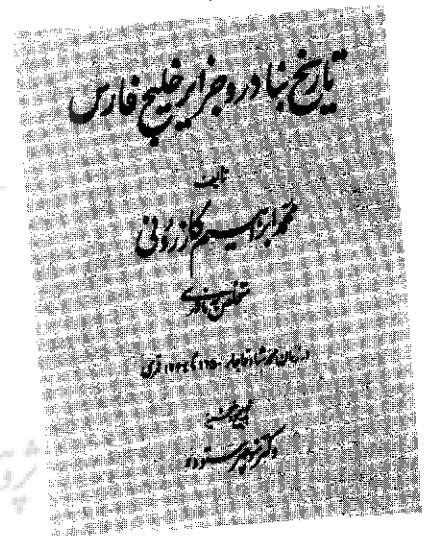 تاریخ بنادر و جزایر خلیج فارس
تألیف
محمد ابراهیم کازرونی
متخلص به نادری
در زمان محمد شاه قاجار ۱۲۵۰ تا ۱۲۶۴ قمری
تصحیح و تحشیه
دکتر منوچهر ستوده